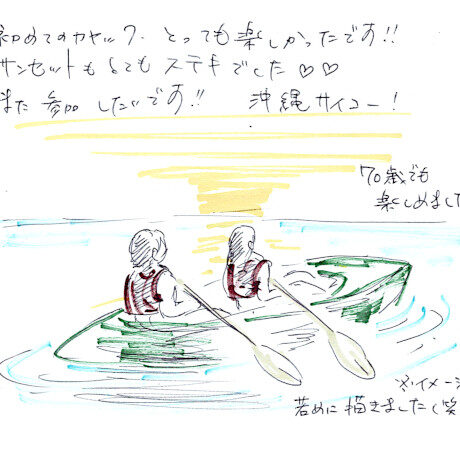 初めてのカヤック、とっても楽しかったです!!
サンセットもとてもステキでした♡♡
また参加したいです!! 沖縄サイコー!
70歳でも
楽しめました
※イメージ
若めに描きました(笑